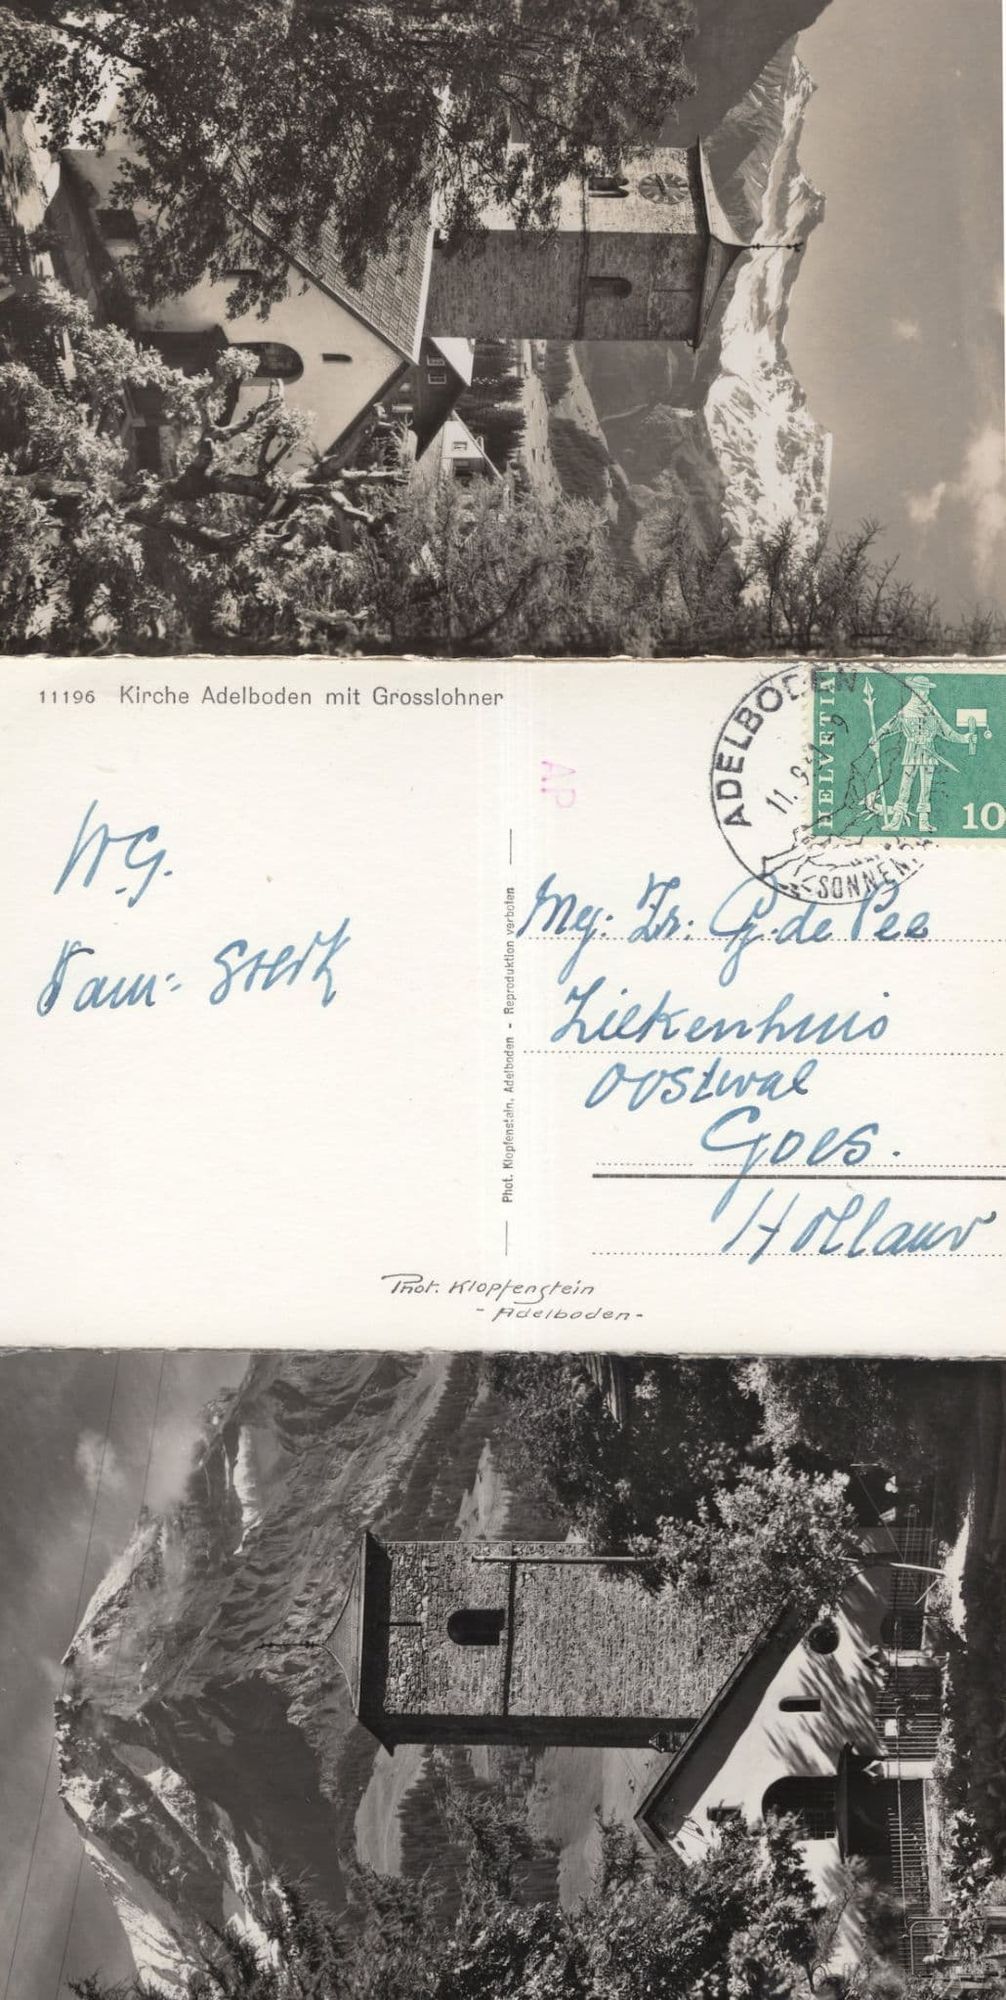 11196 Kirche Adelboden mit Grosslohner
ADELBODEN
11. 9.
SONNEN
HELVETIA
10
AP
W.G.
Fam: Sterk
Phot. Klopfenstein, Adelboden - Reproduktion verboten
Mej: Zr: G. de Pee
Ziekenhuis
Oostwal
Goes.
Holland
Phot. Klopfenstein
- Adelboden -